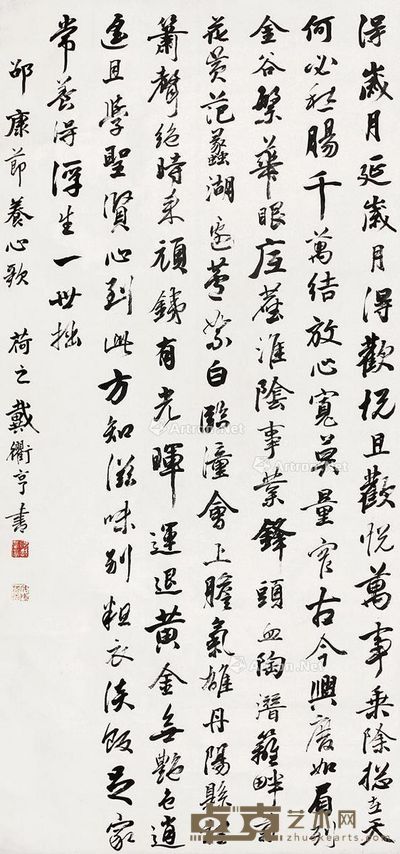 得歲月延歲月得歡悅且歡悅萬事乘除總在天
何必愁腸千萬結放心寬莫量窄古今興廢如眉列
金谷繁華眼底塵淮陰事業鋒頭血陶潛籬畔菊
花黃范蠡湖邊蘆絮白臨潼會上膽氣雄丹陽縣裡
簫聲絕時來頑鐵有光暉運退黃金無艷色逍
遙且學聖賢心到此方知滋味別粗衣淡飯足家
常養得浮生一世拙
邵康節養心歌 荷之戴衢亨書
Artron.Net
艺术网
www.zhuokearts.com